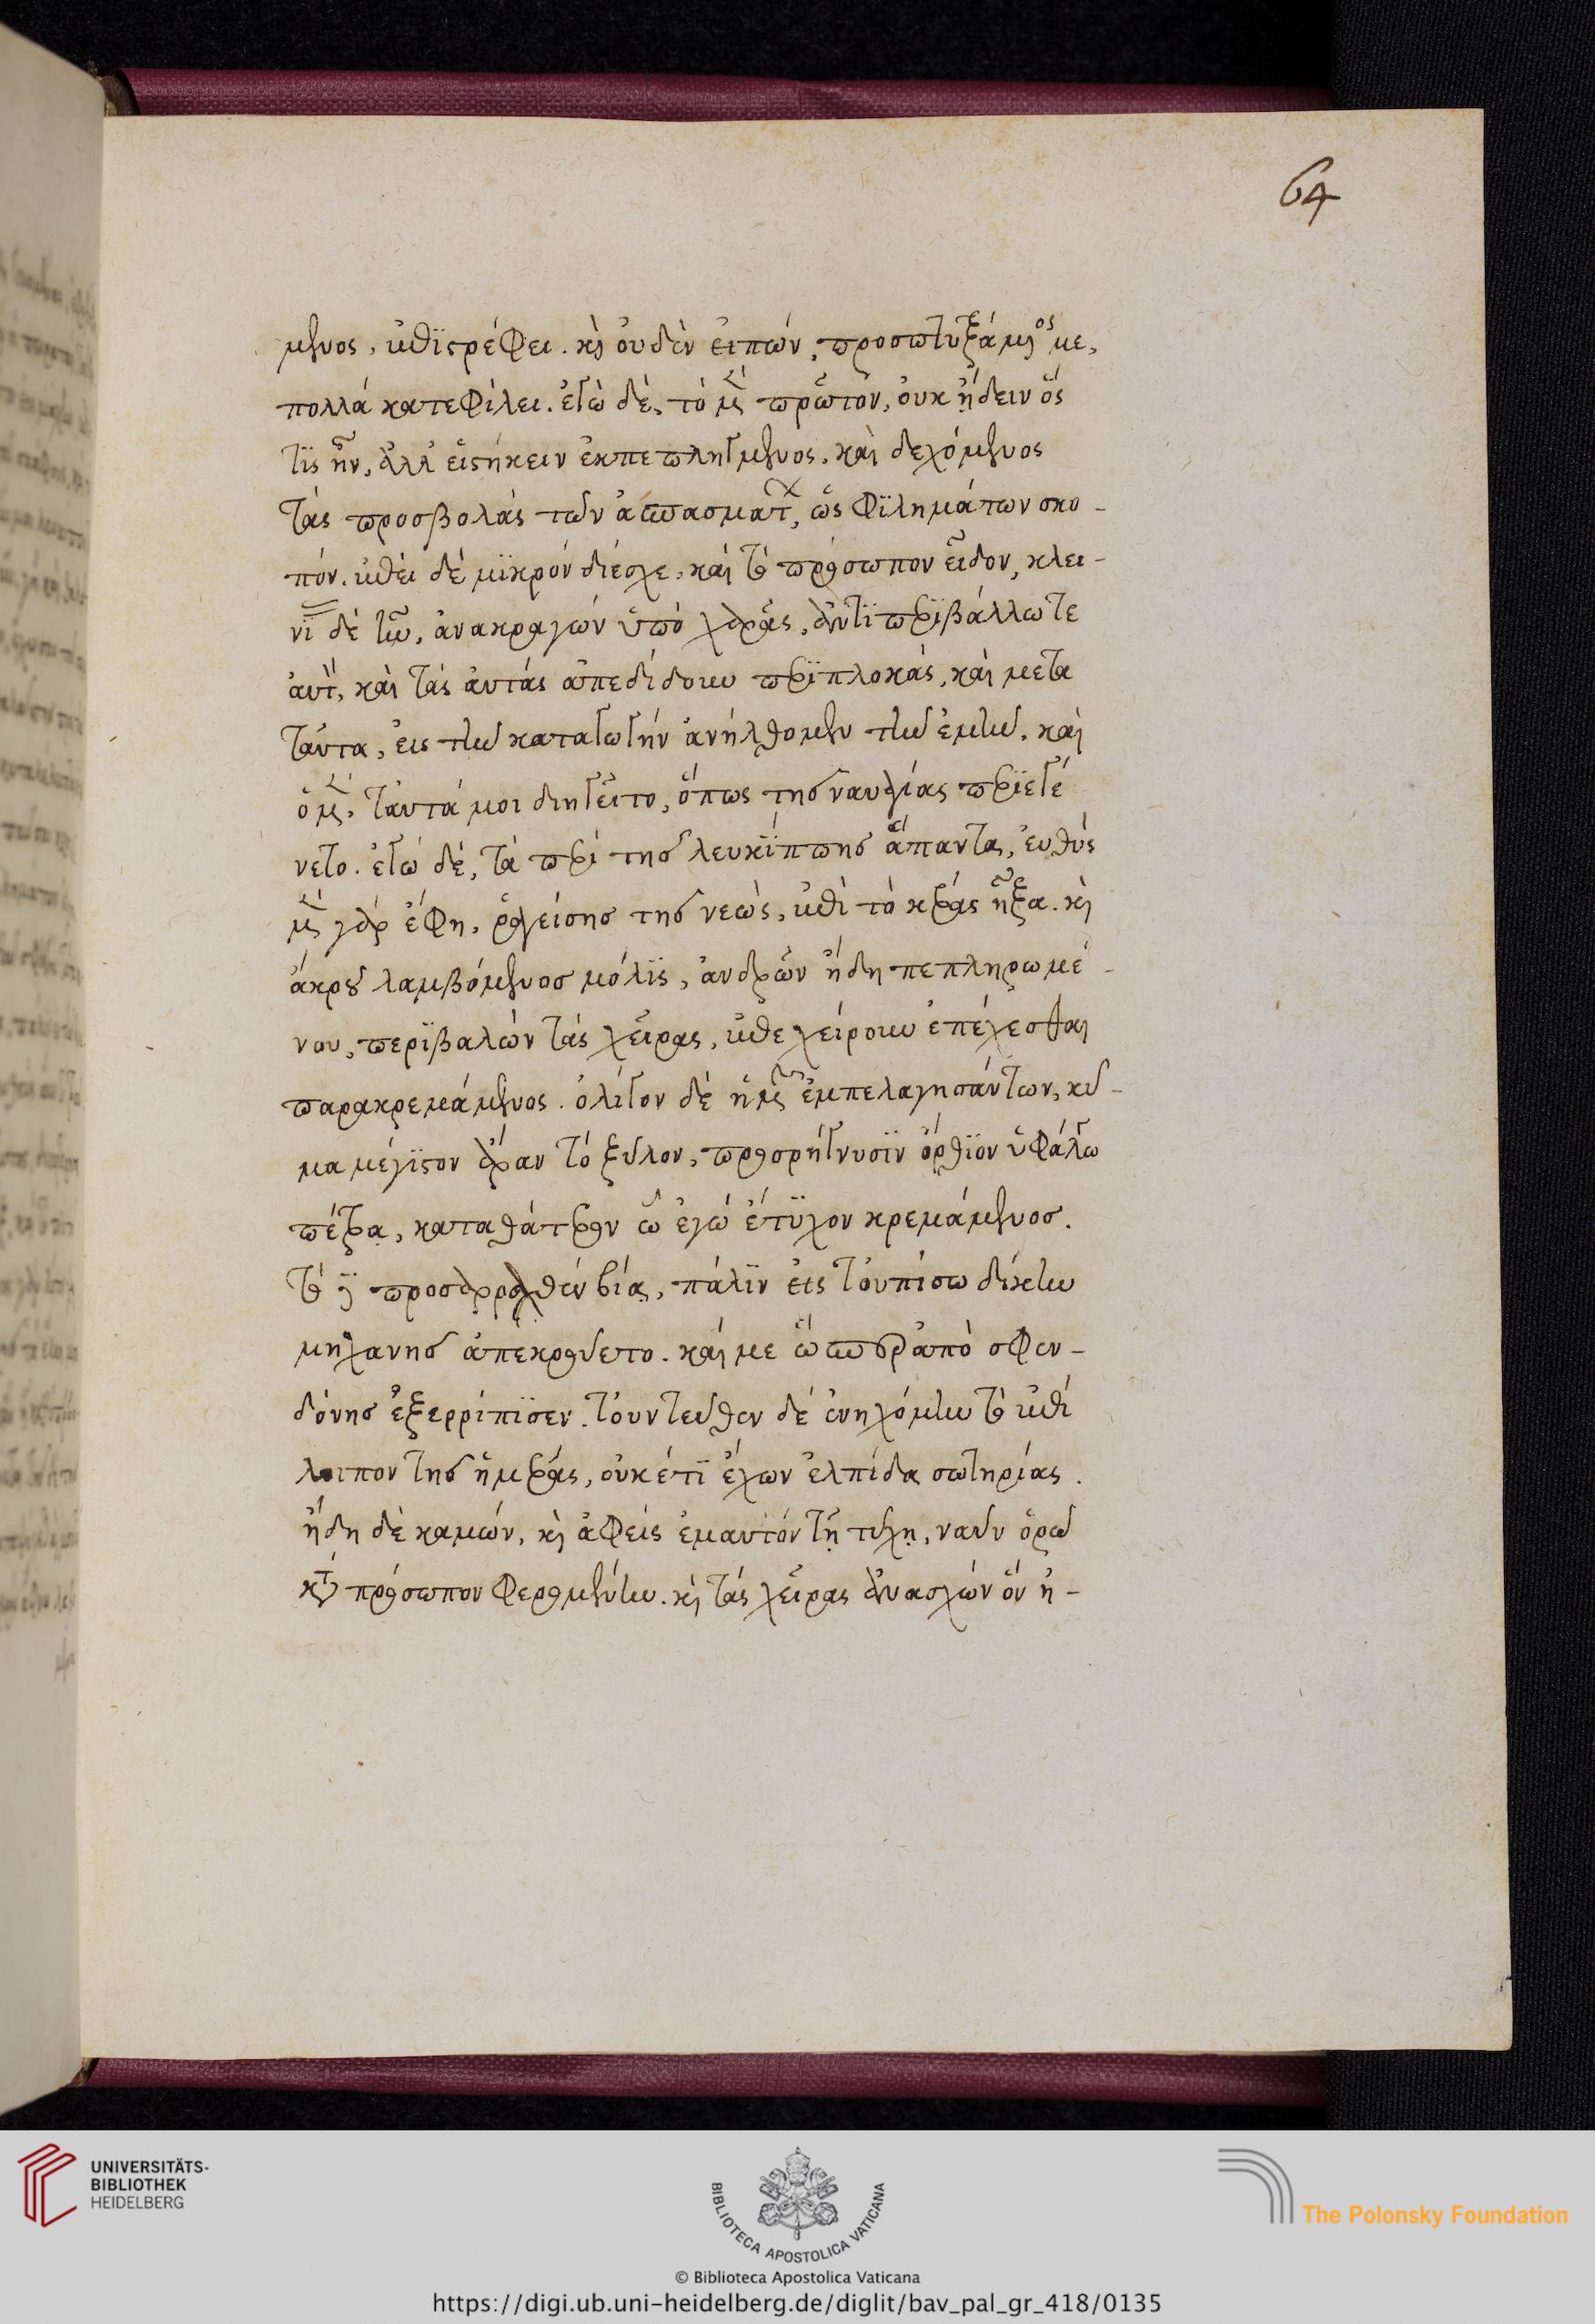 64
μενος, ἐπιστρέφει. καὶ οὐδὲν εἰπών, προσπτυξάμενος με,
πολλὰ κατεφίλει. ἐγὼ δὲ, τὸ μὲν πρῶτον, οὐκ ᾔδειν ὅς
τις ἦν, ἀλλ' εἱστήκειν ἐκπεπληγμένος, καὶ δεχόμενος
τὰς προσβολὰς τῶν ἀσπασμάτων, ὡς φιλημάτων σκο-
πόν. ἐπεὶ δὲ μικρὸν διέσχε, καὶ τὸ πρόσωπον εἶδον, κλει-
νί δὲ ἦν, ἀνακραγὼν ὑπὸ χαρᾶς, ἀντιπεριβάλλω τε
αὐτὸν, καὶ τὰς αὐτὰς ἀπεδίδουν περιπλοκὰς, καὶ μετὰ
ταῦτα, εἰς τὴν καταγωγὴν ἀνήλθομεν τὴν ἐμὴν. καὶ
ὁ μὲν, ταῦτά μοι διηγεῖτο, ὅπως τῆς ναυαγίας περιεγέ
νετο. ἐγὼ δὲ, τὰ περὶ τῆς λευκίππης ἅπαντα, εὐθὺς
μὲν γὰρ ἔφη, ῥαγείσης τῆς νεὼς, ἐπὶ τὸ κέρας ἦξα. καὶ
ἄκρου λαμβόμενος μόλις, ἀνδρῶν ἤδη πεπληρωμέ-
νου, περιβαλὼν τὰς χεῖρας, ἐπεχείρουν ἐπέχεσθαι
παρακρεμάμενος. ὀλίγον δὲ ἡμῶν ἐμπελαγησάντων, κῦ-
μα μέγιστον ἄραν τὸ ξύλον, προσρήγνυσιν ὄρθιον ὑφάλῳ
πέτρᾳ, κατὰ θάτερον ᾧ ἐγὼ ἔτυχον κρεμάμενος.
τὸ δὲ προσαραχθὲν βίᾳ, πάλιν εἰς τοὐπίσω δίκην
μηχανῆς ἀπεκρούετο. καί με ὥσπερ ἀπὸ σφεν-
δόνης ἐξερρίπισεν. τοὐντεῦθεν δὲ ἐνηχόμην τὸ ἐπί
λοιπον τῆς ἡμέρας, οὐκέτι ἔχων ἐλπίδα σωτηρίας.
ἤδη δὲ καμὼν, καὶ ἀφεὶς ἐμαυτὸν τῇ τύχῃ, ναῦν ὁρῶ
κατὰ πρόσωπον φερομένην. καὶ τὰς χεῖρας ἀνασχὼν ὃν ἠ-
UNIVERSITÄTS-
BIBLIOTHEK
HEIDELBERG
BIBLIOTECA APOSTOLICA VATICANA
© Biblioteca Apostolica Vaticana
The Polonsky Foundation
https://digi.ub.uni-heidelberg.de/diglit/bav_pal_gr_418/0135